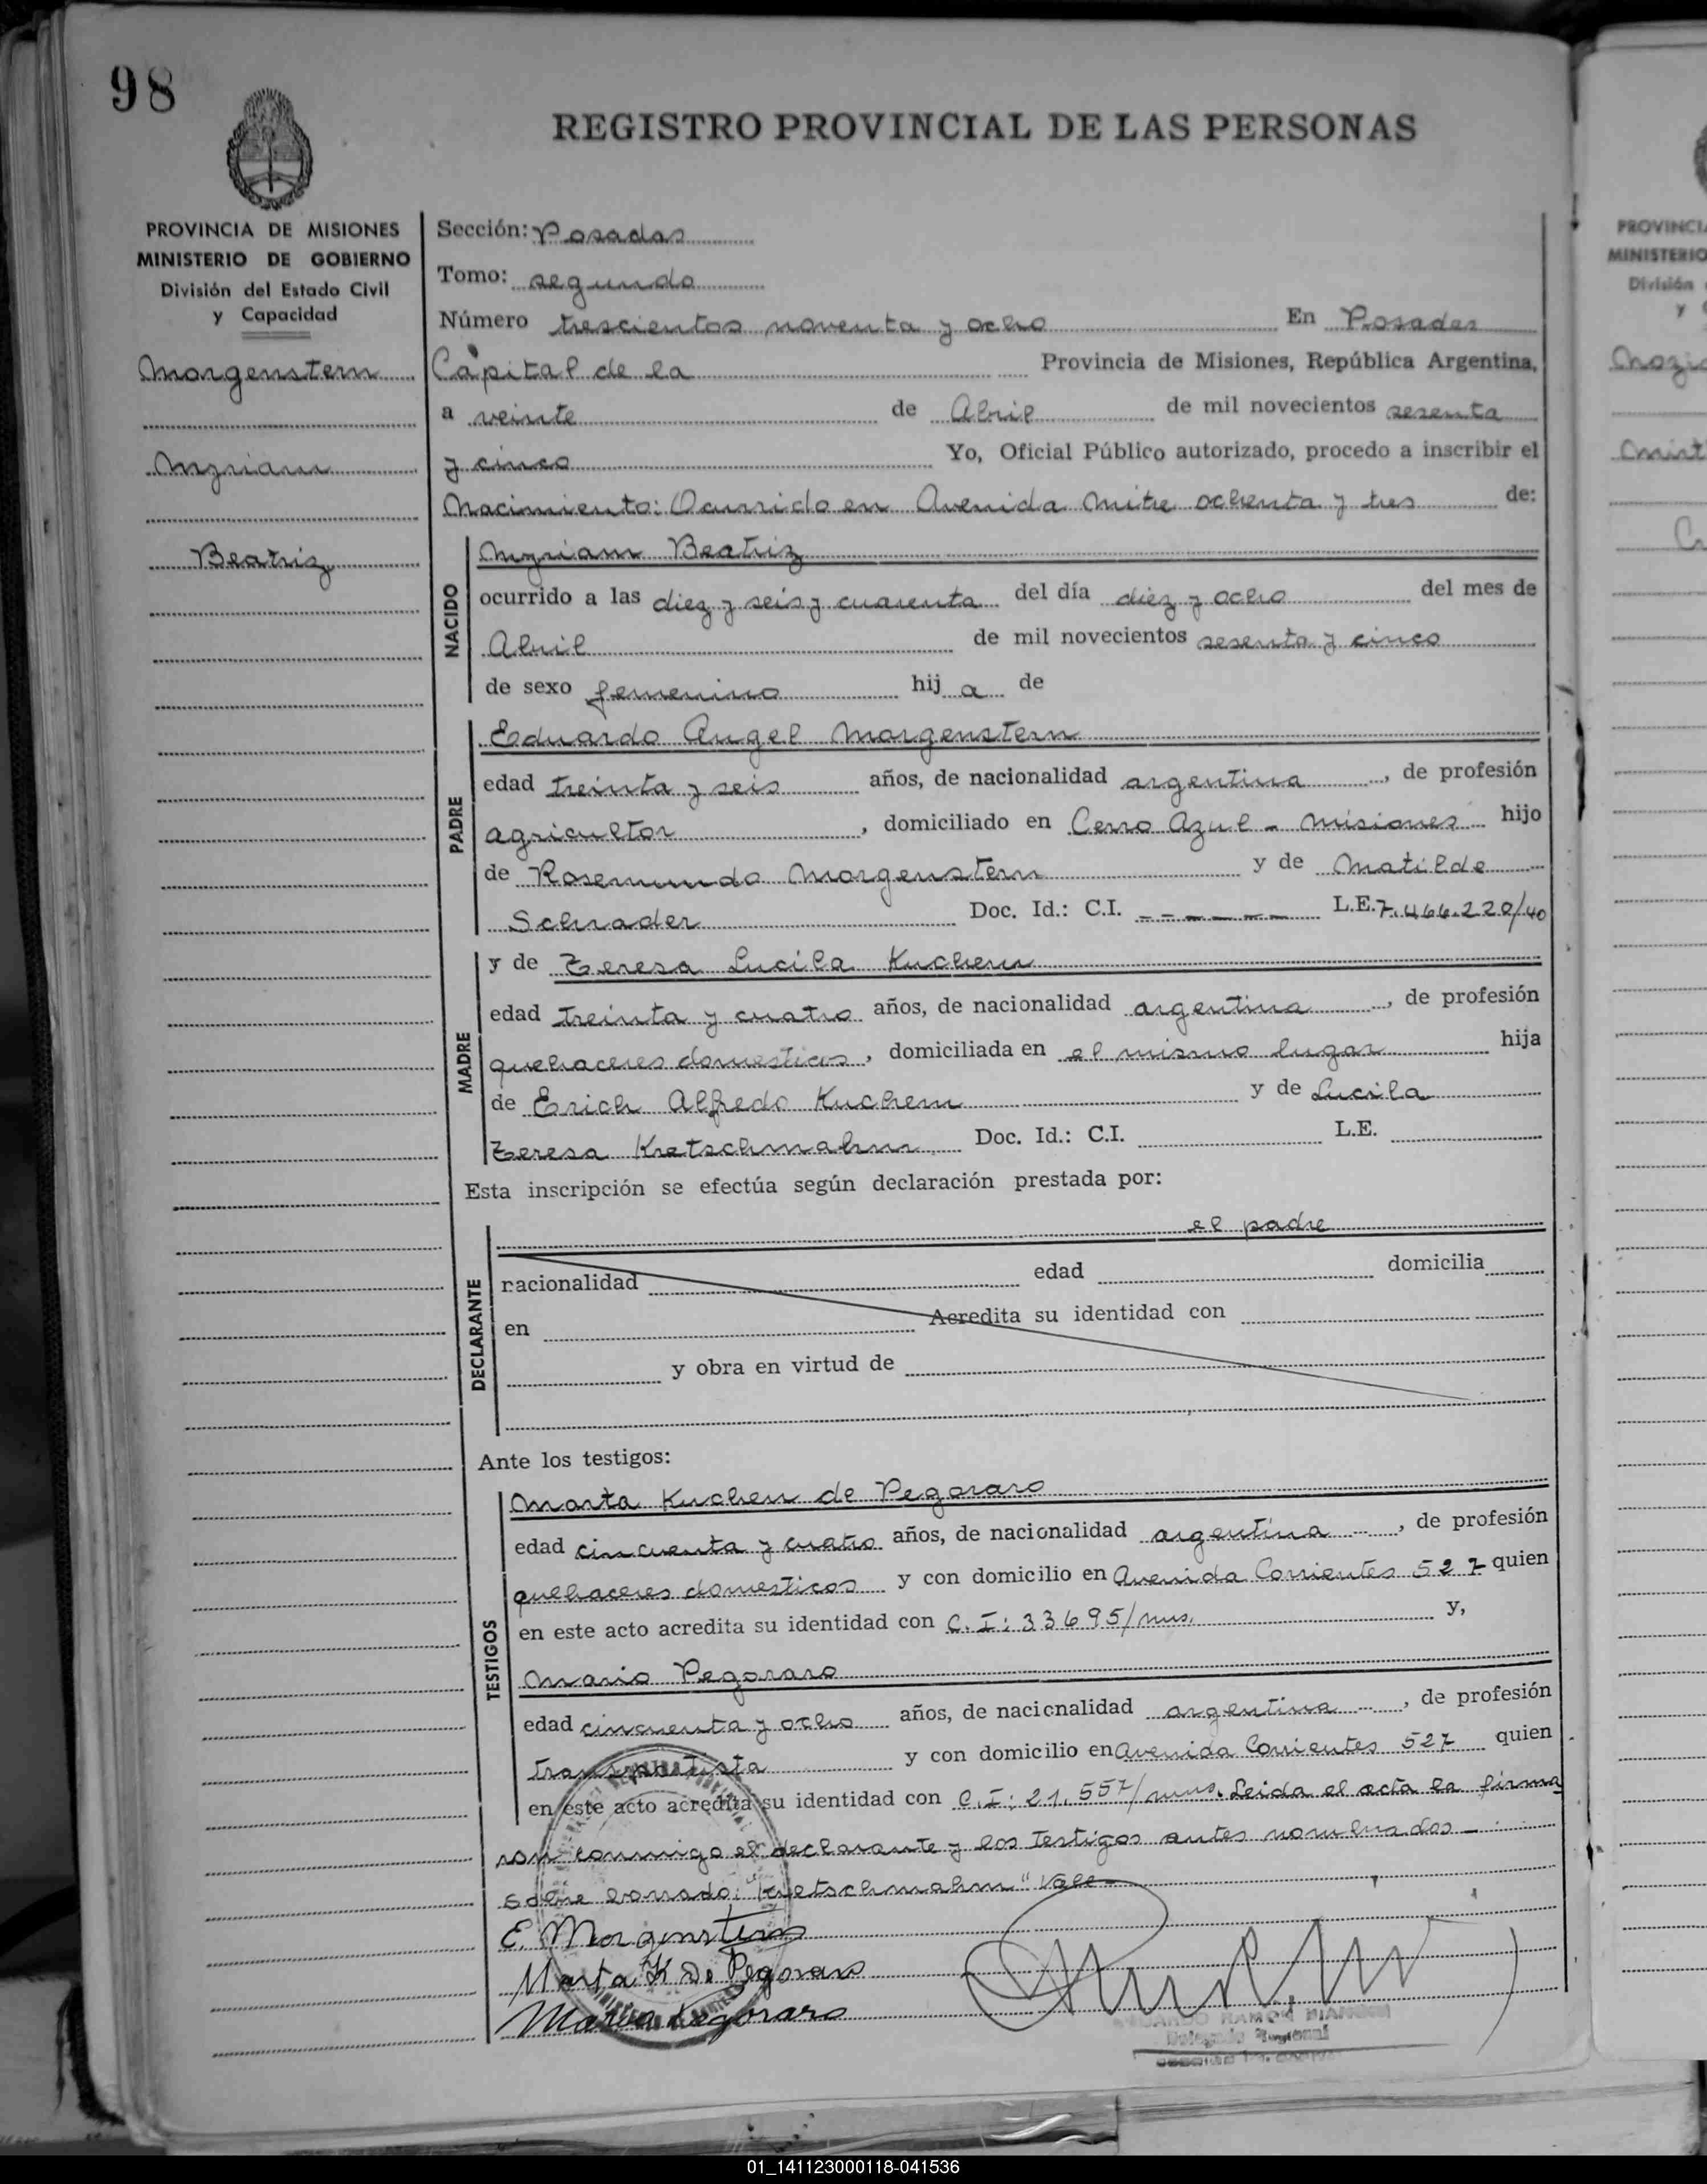 98
REGISTRO PROVINCIAL DE LAS PERSONAS
PROVINCIA DE MISIONES
MINISTERIO DE GOBIERNO
División del Estado Civil
y Capacidad
Morgenstern
Myriam
Beatriz
Sección: Posadas
Tomo: segundo
Número trescientos noventa y ocho En Posadas
Capital de la Provincia de Misiones, República Argentina,
a veinte de Abril de mil novecientos sesenta
y cinco Yo, Oficial Público autorizado, procedo a inscribir el
Nacimiento: Ocurrido en Avenida Mitre ochenta y tres de:
NACIDO
Myriam Beatriz
ocurrido a las diez y seis y cuarenta del día diez y ocho del mes de
Abril de mil novecientos sesenta y cinco
de sexo femenino hij a de
PADRE
Eduardo Angel Morgenstern
edad treinta y seis años, de nacionalidad argentina, de profesión
agricultor, domiciliado en Cerro Azul - Misiones hijo
de Rosemundo Morgenstern y de Matilde
Schrader Doc. Id.: C.I. ------ L.E. 7.466.220/40
MADRE
y de Teresa Lucila Kuchen
edad treinta y cuatro años, de nacionalidad argentina, de profesión
quehaceres domesticos, domiciliada en el mismo lugar hija
de Erich Alfredo Kuchem y de Lucila
Teresa Kretschmahm Doc. Id.: C.I. L.E.
Esta inscripción se efectúa según declaración prestada por:
DECLARANTE
el padre
nacionalidad edad domicilia
en Acredita su identidad con
y obra en virtud de
Ante los testigos:
TESTIGOS
Marta Kuchen de Pegoraro
edad cincuenta y cuatro años, de nacionalidad argentina, de profesión
quehaceres domesticos y con domicilio en Avenida Corrientes 527 quien
en este acto acredita su identidad con C.I: 33695/mns. y,
Mario Pegoraro
edad cincuenta y ocho años, de nacionalidad argentina, de profesión
transportista y con domicilio en Avenida Corrientes 527 quien
en este acto acredita su identidad con C.I: 21.557/mns. Leida el acta la firma
ron conmigo el declarante y los testigos antes nombrados -
Sobre borrado: "Kretschmahm" Vale-
E. Morgenstern
Marta K De Pegoraro
Mario Pegoraro
EDUARDO RAMON BIANCHI
Delegado Regional
PROVINCI
MINISTERIO
División
y
01_141123000118-041536